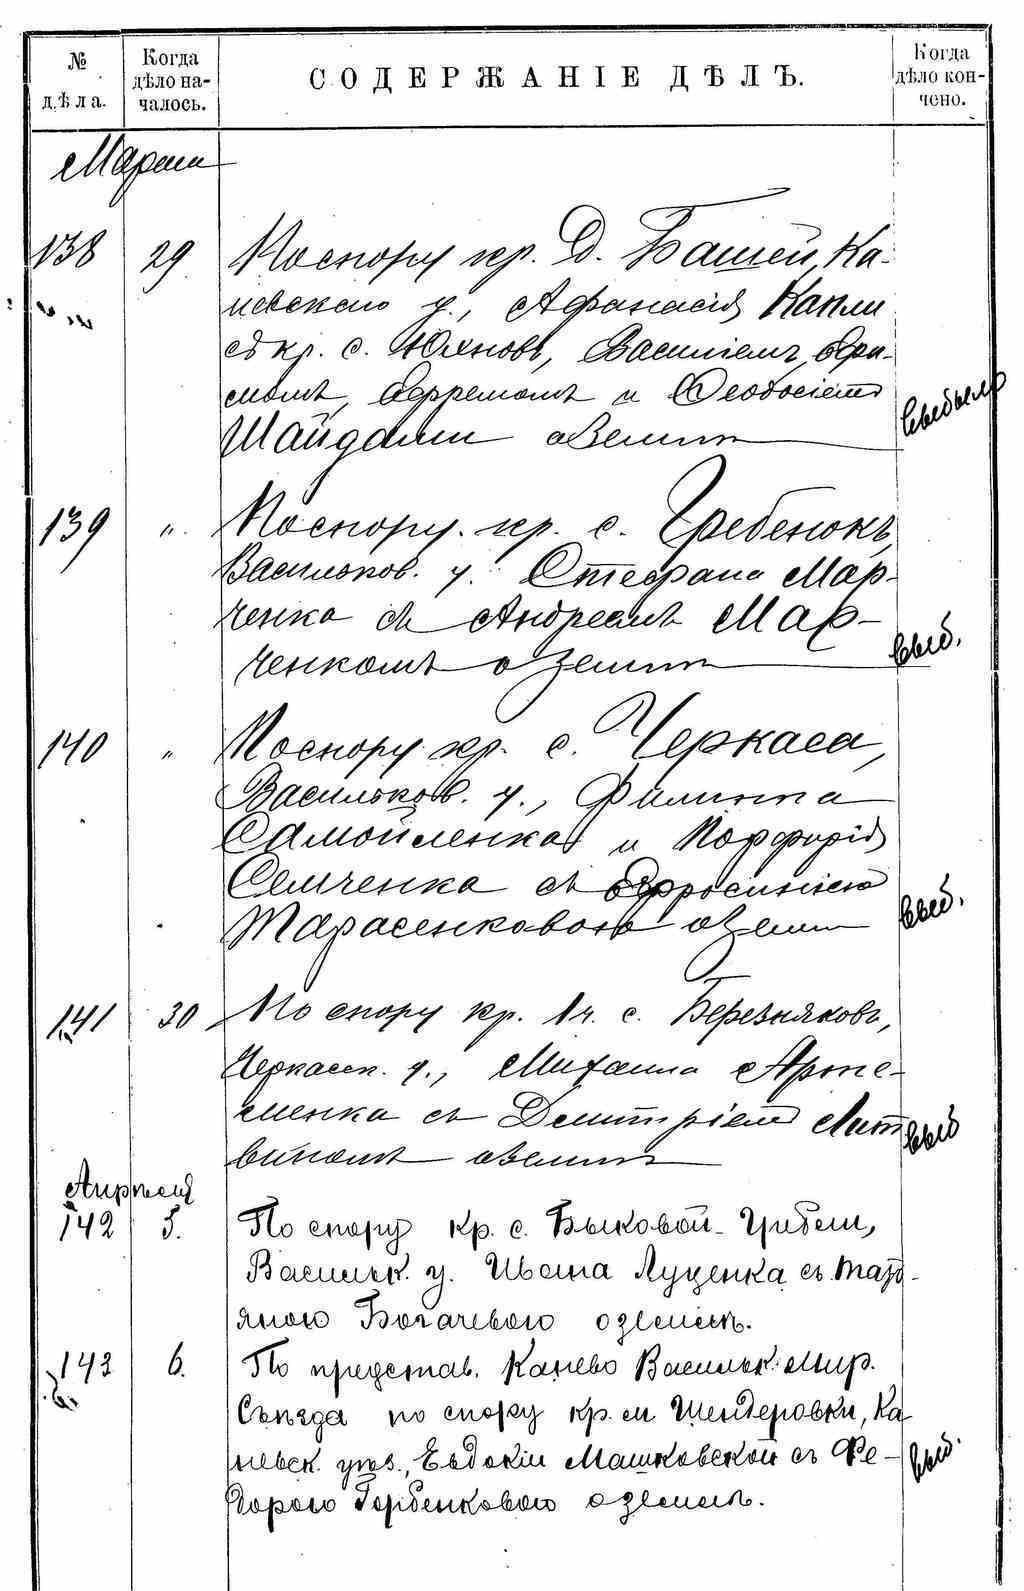 № дѣла.
Когда дѣло на-чалось.
СОДЕРЖАНІЕ ДѢЛЪ.
Когда дѣло кон-чено.
Марта
138 29 По спору кр. д. Башей, Ка-
невскаго у., Афанасія Капли
съ кр. с. Юхновъ, Василіемъ,
Ефремомъ и Ѳеодосіемъ
Шайдами о землѣ выбыло
139 " По спору кр. с. Гребенокъ,
Васильков. у. Стефана Мар-
ченка съ Андреемъ Мар-
ченкомъ о землѣ выб.
140 " По спору кр. с. Черкаса,
Васильков. у., Филиппа
Самойленка и Порфирія
Семченка съ Ефросиніею
Тарасенковою о землѣ выб.
141 30 По спору кр. 1 ч. с. Березняковъ,
Черкасск. у., Михаила Арте-
менка съ Дмитріемъ Лит
виномъ о землѣ выб
Апрѣля
142 5. По спору кр. с. Быковой-Гребли,
Васильк. у. Ивана Луценка съ Тать-
яною Богачевою о землѣ.
143 6. По представ. Канево Васильк. мир.
Съѣзда по спору кр. м. Шендеровки, Ка
невск. уѣз., Евдокіи Машковской съ Ѳе-
дорою Горбенковою о землѣ. выб.